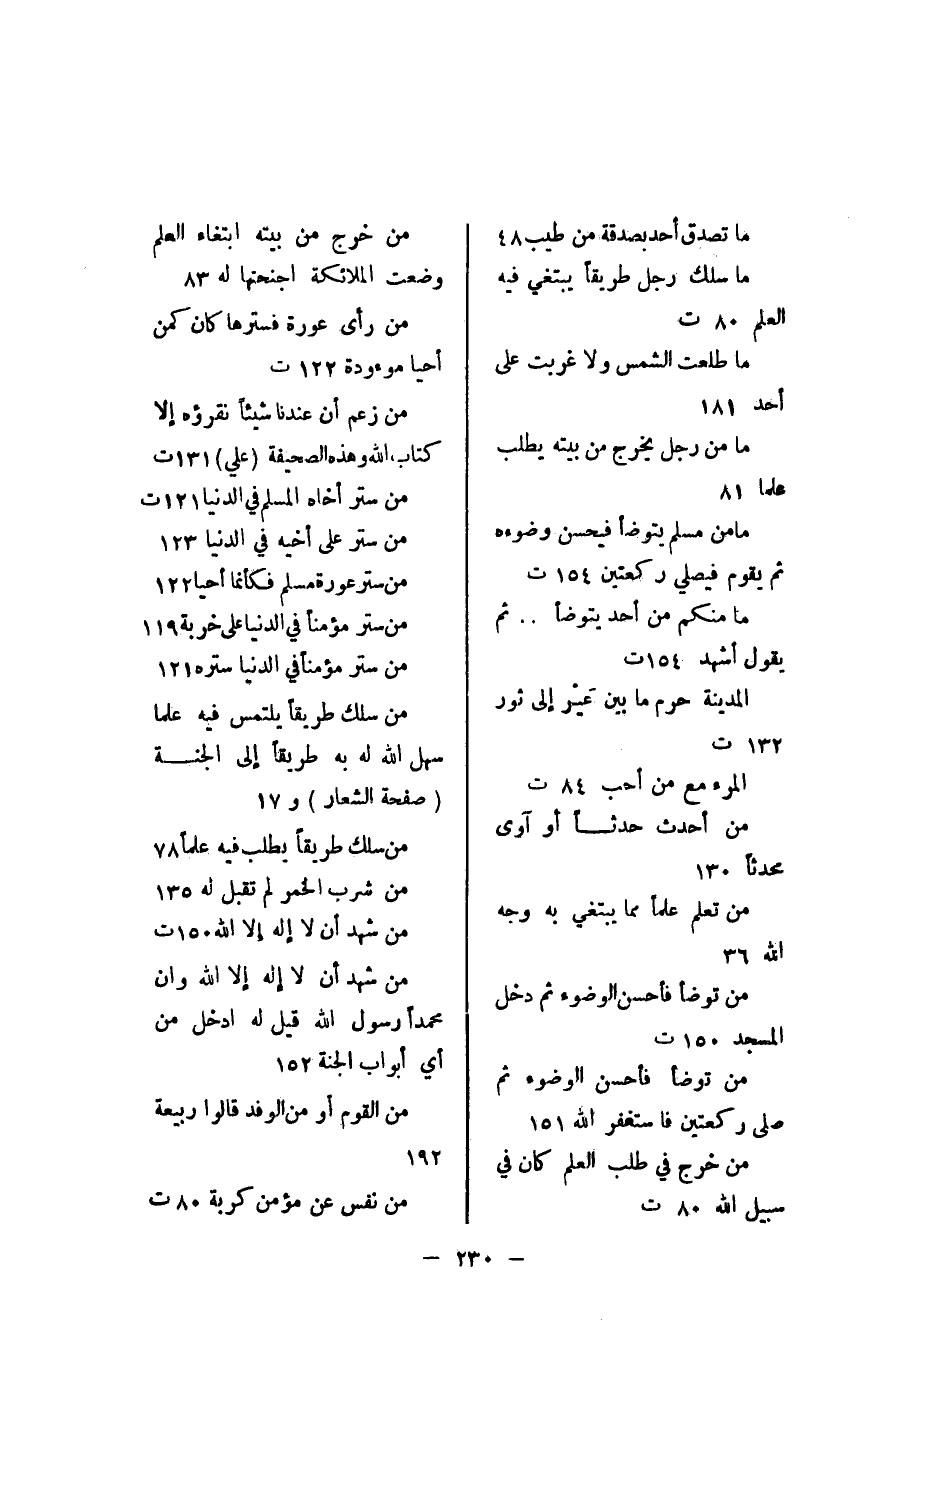 ما تصدق أحد بصدقة من طيب ٤٨
ما سلك رجل طريقاً يبتغي فيه
العلم ٨٠ ت
ما طلعت الشمس ولا غربت على
أحد ١٨١
ما من رجل يخرج من بيته يطلب
علما ٨١
مامن مسلم يتوضأ فيحسن وضوءه
ثم يقوم فيصلي ركعتين ١٥٤ ت
ما منكم من أحد يتوضأ .. ثم
يقول أشهد ١٥٤ت
المدينة حرم ما بين عَيْر إلى ثور
١٣٢ ت
المرء مع من أحب ٨٤ ت
من أحدث حدثــاً أو آوى
محدثاً ١٣٠
من تعلم علماً مما يبتغي به وجه
الله ٣٦
من توضأ فأحسن الوضوء ثم دخل
المسجد ١٥٠ ت
من توضأ فأحسن الوضوء ثم
صلى ركعتين فاستغفر الله ١٥١
من خرج في طلب العلم كان في
سبيل الله ٨٠ ت
من خرج من بيته ابتغاء العلم
وضعت الملائكة اجنحتها له ٨٣
من رأى عورة فسترها كان كمن
أحيا موءودة ١٢٢ ت
من زعم أن عندنا شيئاً نقرؤه إلا
كتاب الله وهذه الصحيفة (علي) ١٣١ت
من ستر أخاه المسلم في الدنيا ١٢١ت
من ستر على أخيه في الدنيا ١٢٣
من ستر عورة مسلم فكأنما أحيا ١٢٢
من ستر مؤمناً في الدنيا على خربة ١١٩
من ستر مؤمناً في الدنيا ستره ١٢١
من سلك طريقاً يلتمس فيه علما
سهل الله له به طريقاً إلى الجنــة
( صفحة الشعار ) و ١٧
من سلك طريقاً يطلب فيه علماً ٧٨
من شرب الخمر لم تقبل له ١٣٥
من شهد أن لا إله إلا الله ١٥٠ت
من شهد أن لا إله إلا الله وان
محمداً رسول الله قيل له ادخل من
أي أبواب الجنة ١٥٢
من القوم أو من الوفد قالوا ربيعة
١٩٢
من نفس عن مؤمن كربة ٨٠ ت
– ٢٣٠ –